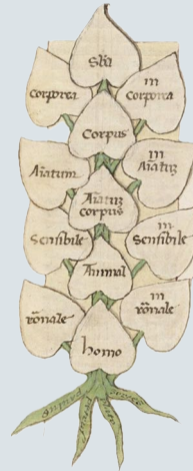 Sba
Corporea
in
Corporea
Corpus
Aiatum
in
Aiatum
Aiatum
corpus
Sensibile
in
Sensibile
Animal
rōnale
in
rōnale
homo